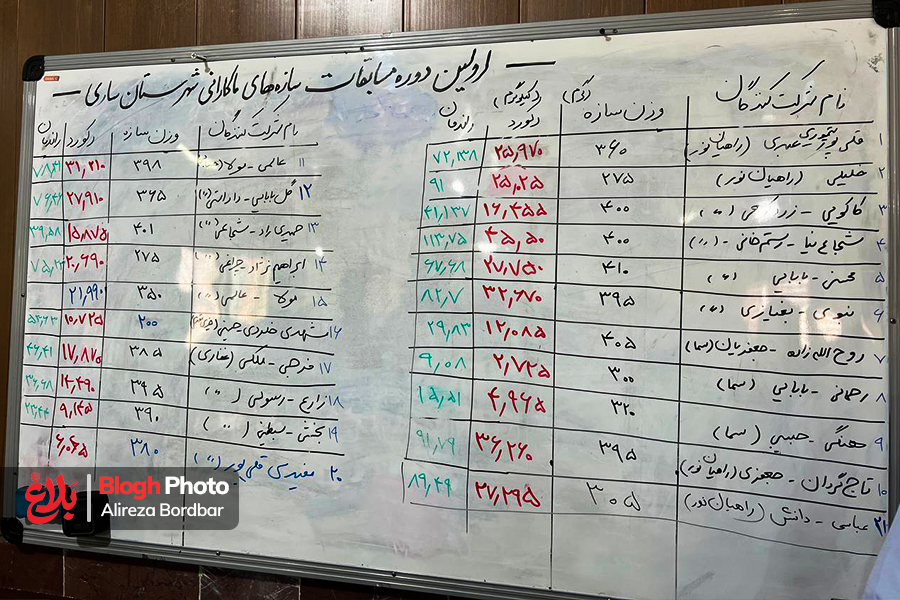 — اولین دوره مسابقات سازه‌های ماکارانی شهرستان ساری —
نام شرکت کنندگان وزن سازه (گرم) رکورد (کیلوگرم) راندمان
۱ قلی پور (راهیان نور) ۳۶۰ ۲۵,۹۷۰ ۷۲,۱۳۸
۲ خلیلی (راهیان نور) ۲۷۵ ۲۵,۲۵ ۹۱
۳ کاکویی - (〃) ۴۰۰ ۱۶,۴۵۵ ۴۱,۱۳۷
۴ شجاع نیا - رستم خانی (〃) ۴۰۰ ۴۵,۵۰ ۱۱۳,۷۵
۵ محسنی - بابایی (〃) ۴۱۰ ۲۷,۷۵۰ ۶۷,۶۸
۶ نبوی - (〃) ۳۹۵ ۳۲,۶۷۰ ۸۲,۷
۷ روح الله زاده - جعفریان (سما) ۴۰۵ ۱۲,۰۸۵ ۲۹,۸۳
۸ رحمانی - بابایی (سما) ۳۰۰ ۲,۷۲۵ ۹,۰۸
۹ همتی - حبیبی (سما) ۳۲۰ ۴,۹۶۵ ۱۵,۵۱
۱۰ تاج گردان - جعفری (راهیان نور) ۳۹۵ ۳۶,۲۶۰ ۹۱,۷۹
۲۱ عباسی - دانش (راهیان نور) ۳۰۵ ۲۷,۲۹۵ ۸۹,۴۹
نام شرکت کنندگان وزن سازه رکورد راندمان
۱۱ عالمی - (〃) ۳۹۸ ۳۱,۲۱۰ ۷۸,۴۱
۱۲ گل بابایی - دارابی (〃) ۳۶۵ ۲۷,۹۱۰ ۷۶,۴۶
۱۳ حمیدی راد - شجاعی (〃) ۴۰۱ ۱۵,۸۷۵ ۳۹,۵۸
۱۴ ابراهیم نژاد - چراغی (〃) ۲۷۵ ۲۰,۶۹۰ ۷۵,۲۳
۱۵ - عالمی (〃) ۳۵۰ ۲۱,۹۹۰
۱۶ مشهدی ۲۰۰ ۱۰,۷۲۵ ۵۳,۶۲
۱۷ فرجی - ملکی (غفاری) ۳۸۵ ۱۷,۸۷۰ ۴۶,۴۱
۱۸ زارع - رسولی (〃) ۳۹۵ ۱۴,۴۹۰ ۳۶,۶۸
۱۹ بخشی - (〃) ۳۹۰ ۹,۱۴۵ ۲۳,۴۴
۲۰ قلی پور (〃) ۳۸۰ ۶,۰۶۵
بلاغ Blogh Photo
Alireza Bordbar